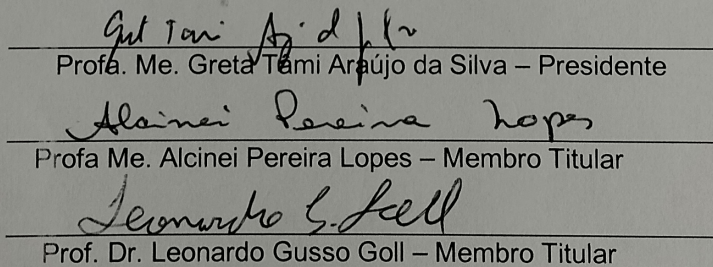 Profa. Me. Greta Tami Araújo da Silva – Presidente
Alcinei Pereira Lopes
Profa Me. Alcinei Pereira Lopes – Membro Titular
Leonardo G. Goll
Prof. Dr. Leonardo Gusso Goll – Membro Titular